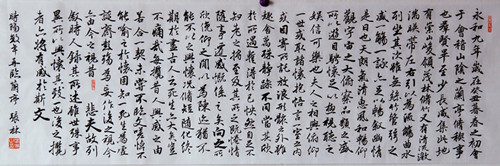 永和九年歲在癸丑暮春之初會
于會稽山陰之蘭亭脩稧事
也群賢畢至少長咸集此地
有崇山峻領茂林脩竹又有清流激
湍暎帶左右引以為流觴曲水
列坐其次雖無絲竹管弦之
盛一觴一詠亦足以暢敘幽情
是日也天朗氣清惠風和暢仰
觀宇宙之大俯察品類之盛
所以遊目騁懷足以極視聽之
娛信可樂也夫人之相與俯仰
一世或取諸懷抱悟言一室之內
或因寄所託放浪形骸之外雖
趣舍萬殊靜躁不同當其欣
於所遇暫得於己快然自足不
知老之將至及其所之既惓情
隨事遷感慨係之矣向之所
欣俛仰之間以為陳迹猶不
能不以之興懷況脩短隨化終
期於盡古人云死生亦大矣豈
不痛哉每攬昔人興感之由
若合一契未嘗不臨文嗟悼不
能喻之於懷固知一死生為虛
誕齊彭殤為妄作後之視今
亦由今之視昔悲夫故列
敘時人錄其所述雖世殊事
異所以興懷其致一也後之攬
者亦將有感於斯文
臨蘭亭 張林